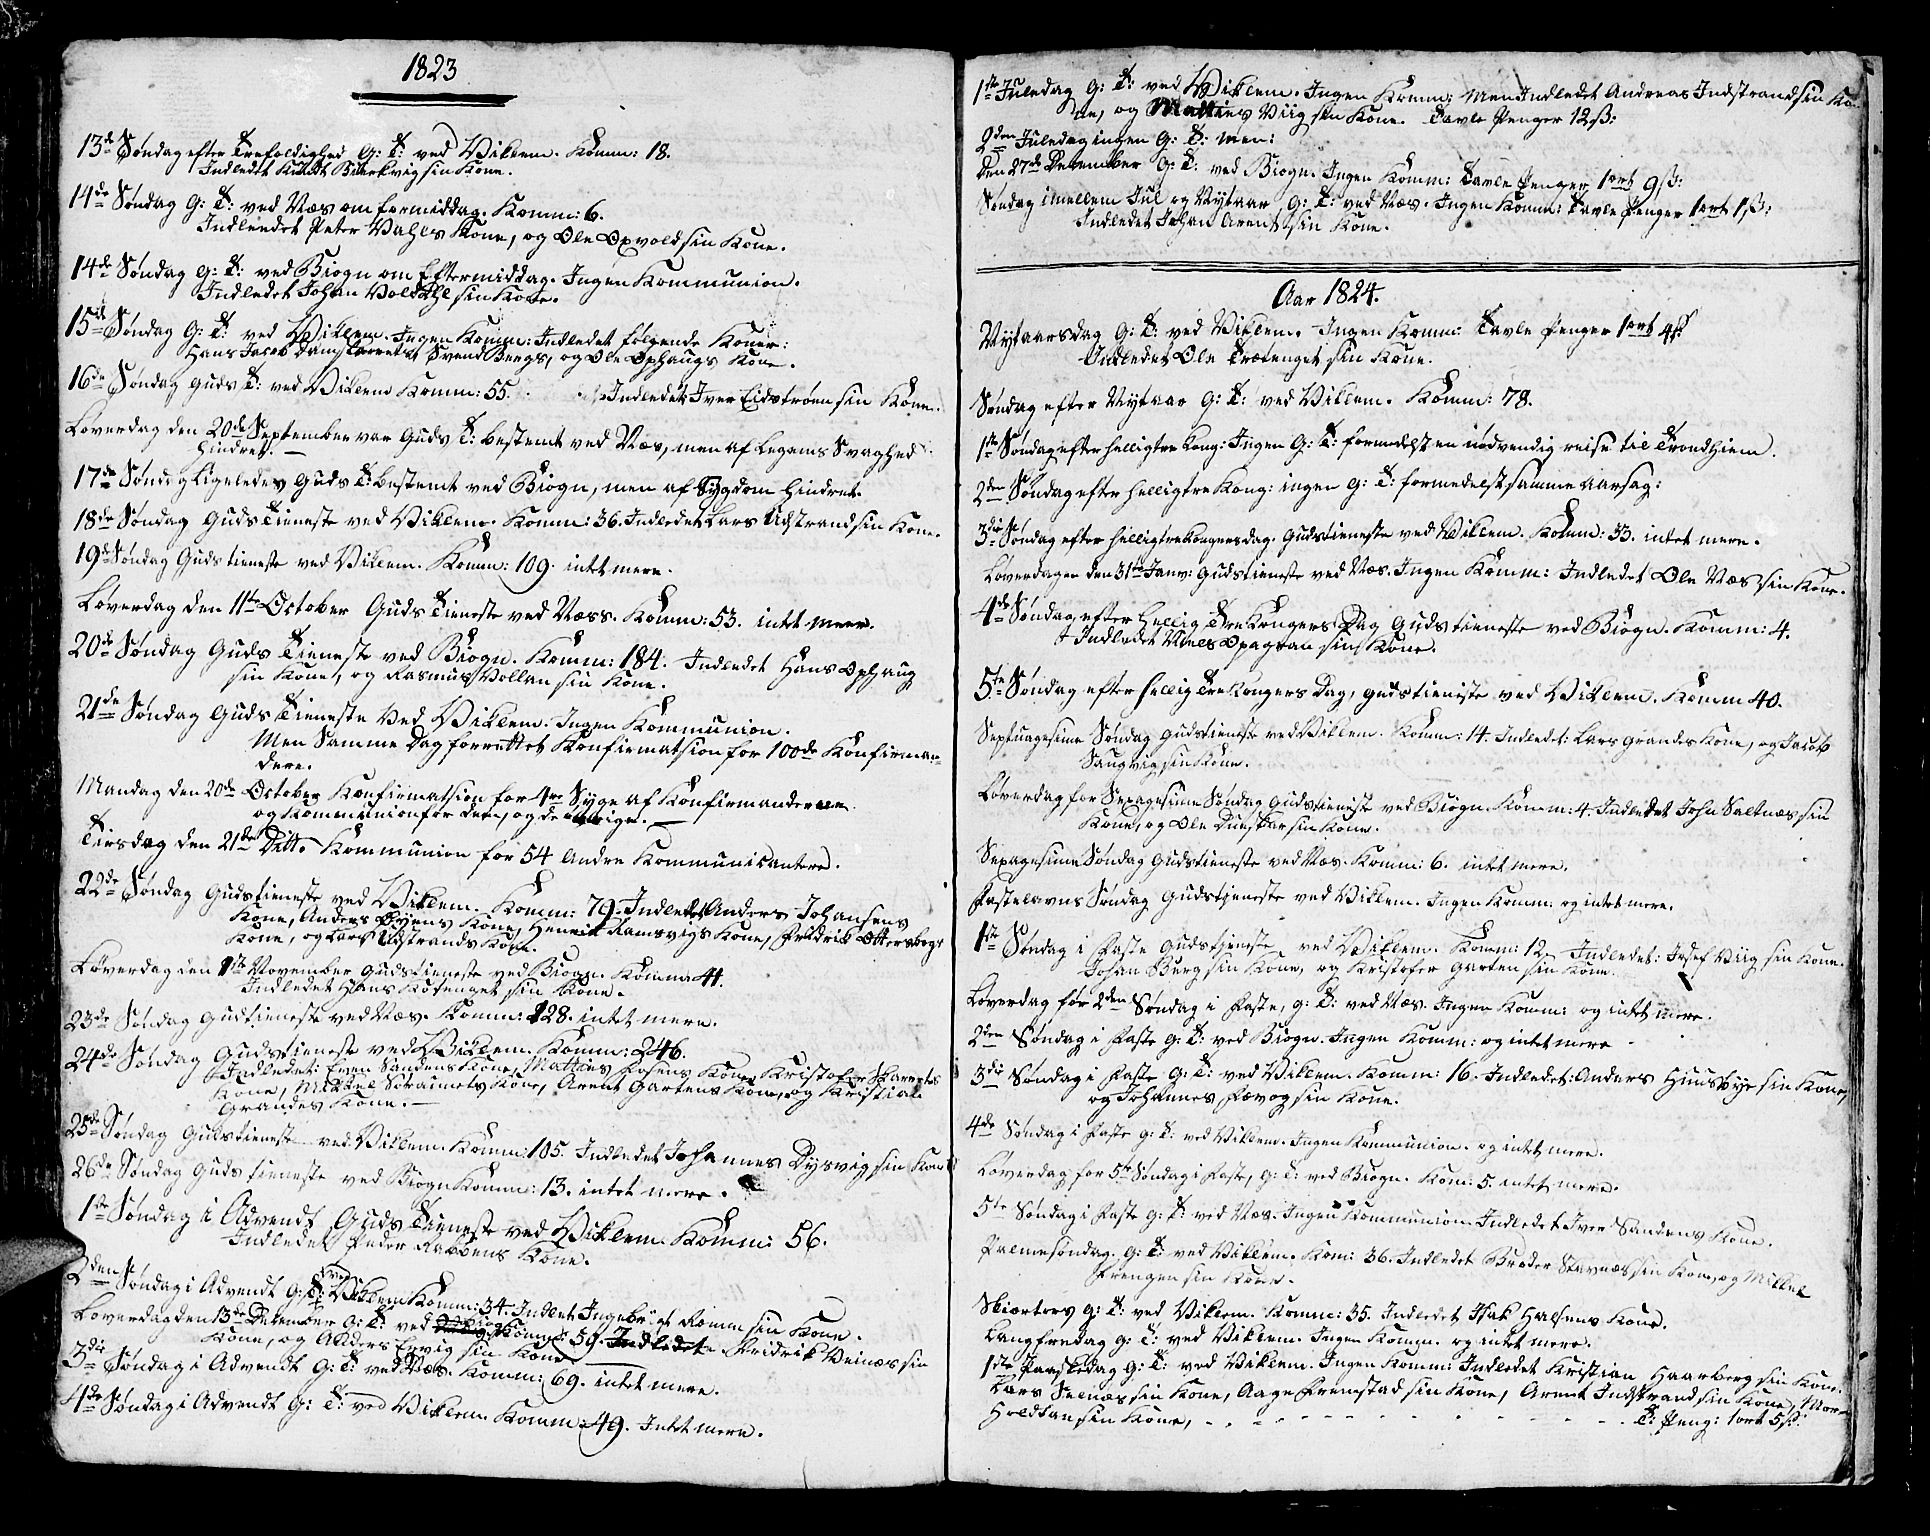 1823
13de Søndag efter Trefoldighed G: T: ved Viklem. Komm: 18.
Indledet Knudt Biørkvig sin Kone.
14de Søndag G: T: ved Næs om formiddag. Komm: 6.
Indleedet Peter Vahls Kone, og Ole Opvold sin Kone.
14de Søndag G: T: ved Biogn om Eftermiddag. Ingen Kommunion.
Indledet Johan Vold sin Kone.
15de Søndag G: T: ved Viklem. Ingen Komm: Indledet følgende Koner:
Hans Jacob Dams Svend Bergs, og Ole Ophaugs Kone.
16de Søndag Guds T: ved Viklem Komm: 55. Indledet Iver Eidstrøen sin Kone.
Løverdag den 20de September var Guds T: bestemt ved Næs, men af Legems Svaghed
Hindret. —
17de Søndag Ligeledes Guds T: bestemt ved Biogn, men af Sygdom hindret.
18de Søndag Guds Tieneste ved Viklem. Komm: 36. Indledet Lars Udstrand sin Kone.
19de Søndag Guds tieneste ved Viklem. Komm: 109. intet mere.
Løverdag den 11te October Guds Tieneste ved Næss. Komm: 53. intet mere.
20de Søndag Guds Tieneste ved Biogn. Komm: 184. Indledet Hans Ophaug
sin Kone, og Rasmus Vollan sin Kone.
21de Søndag Guds Tieneste Ved Viklem. Ingen Kommunion.
Men Samme Dag forrettet Konfirmatsion for 100de Konfirman-
dere.
Mandag den 20de October Konfirmatsion for 4re Syge af Konfirmanderne
og Kommunion for dem, og de øvrige. —
Tirsdag den 21de Ditto Kommunion for 54 Andre Kommunicantere.
22de Søndag Gudstieneste ved Viklem. Komm: 79. Indledet Anders Johansens
Kone, Anders Byens Kone, Henrik Ramsvigs Kone, Fredrik Ottersbogs
Kone, og Lars Udstrands Kone.
Løverdag den 1te November Gudstieneste ved Biogn. Komm 41.
Indledet Hans Kotenget sin Kone.
23de Søndag Gudtieneste ved Næs. Komm: 128. intet mere.
24de Søndag Gudstieneste ved Viklem. Komm: 246.
Indledet: Even Sandens Kone, Mathies Kone, Kristofer
Kone, Mikkel Kone, Arent Gartens Kone, og Kristian
Grandes Kone. —
25de Søndag Gudstieneste ved Viklem. Komm: 105. Indledet Johannes Dysvig sin Kone
26de Søndag Guds tieneste ved Biogn Komm: 13. intet mere.
1ste Søndag i Advendt Guds Tieneste ved Viklem Komm: 56.
Indledet Peder Rabbens Kone.
2den Søndag i Advendt G: T: ved Viklem Komm: 34. Indledt Ingebrigt Romm sin Kone.
Løverdag den 13de December G: T: ved Komm: 59. Indledet Fridrik Veinæs sin
Kone, og Anders Ervig sin Kone
3die Søndag i Advendt G: T: ved Næs. Komm: 69. intet mere.
4de Søndag i Advendt G: T: ved Viklem. Komm: 49. Intet mere.
1ste Juledag G: T: ved Viklem. Ingen Komm: Men Indledet Andreas Indstrand sin Ko-
ne, og Mathies Viig sin Kone. Tavle Penger 12ß:
2den Juledag ingen G: T: Men:
Den 27de December G: T: ved Biogn. Ingen Komm: Tavle Penger 1ort 9ß:
Søndag imellem Jul og Nytaar G: T: ved Næs. Ingen Komm: Tavle Penger 1ort 1ß:
Indledet Johan Arent sin Kone.
Aar 1824.
Nytaarsdag G: T: ved Viklem. Ingen Komm: Tavle Penger 1ort 4ß
Indledet Ole Trætenget sin Kone.
Søndag efter Nytaar G: T: ved Viklem. Komm: 78.
1ste Søndag efter helligtrekong: Ingen G: T: formedelst en nødvendig reise til Trondhiem.
2den Søndag efter helligtre Kong: ingen G: T: formedelst samme Aarsag:
3die Søndag efter helligtrekongersdag. Gudstieneste ved Viklem. Komm: 33. intet mere.
Løverdagen den 31te Janv: Gudstieneste ved Næs. Ingen Komm: Indledet Ole Næs sin Kone.
4de Søndag efter Hellig Tre Kongers Dag Guds tieneste ved Biogn. Komm: 4.
Indledet Niels Opagran sin Kone.
5te Søndag efter hellig Tre Kongers Dag, Gudstieniste ved Viklem. Komm 40.
Septuagesima Søndag Gudstieneste ved Viklem. Komm: 14. Indledet: Lars Grandes Kone, og Jacob
Saugvig sin Kone.
Løverdag for Sexagesima Søndag Gudstieniste ved Biogn. Komm: 4. Indledet John Saltnæs sin
Kone, og Ole sin Kone.
Sexagesima Søndag Gudstieneste ved Næs. Komm: 6. intet mere.
Fastelavns Søndag Gudstieneste ved Viklem. Ingen Komm. og intet mere.
1ste Søndag i Faste Gudstieneste ved Viklem. Komm: 12. Indledet: Josef Viig sin Kone.
Johan Burg sin Kone, og Kristofer Garten sin Kone.
Løverdag før 2den Søndag i Faste, G: T: ved Næs. Ingen Komm: og intet mere.
2den Søndag i Faste G: T: ved Biogn. Ingen Komm: og intet mere
3die Søndag i Faste G: T: ved Viklem. Komm: 16. Indledet: Anders Huusbye sin Kone,
og Johannes Fævog sin Kone.
4de Søndag i Faste G: T: ved Viklem. Ingen Kommunion. og intet mere.
Løverdag for 5te Søndag i Faste, G: T: ved Biogn. Kom: 5. intet mere.
5te Søndag i Faste G: T: ved Næs. Ingen Kommunion. Indledet Iver Sandens Kone.
Palmesøndag. G: T: ved Viklem. Kom: 36. Indledet Stavnæs sin Kone, og Mikkel
Prengen sin Kone.
Skiærtors G: T: ved Viklem. Komm: 35. Indledet Isak Halsens Kone.
Langfredag G: T: ved Viklem. Ingen Komm. og intet mere.
1ste Paaskedag G: T: ved Viklem. Ingen Komm: Indledet Kristian Haarberg sin Kone.
Lars Selnæs sin Kone, Aage Fremstad sin Kone, Arent Indstrand sin Kone,
Holdtan sin Kone, - - - - - - - - T: Peng: 1ort 5ß: